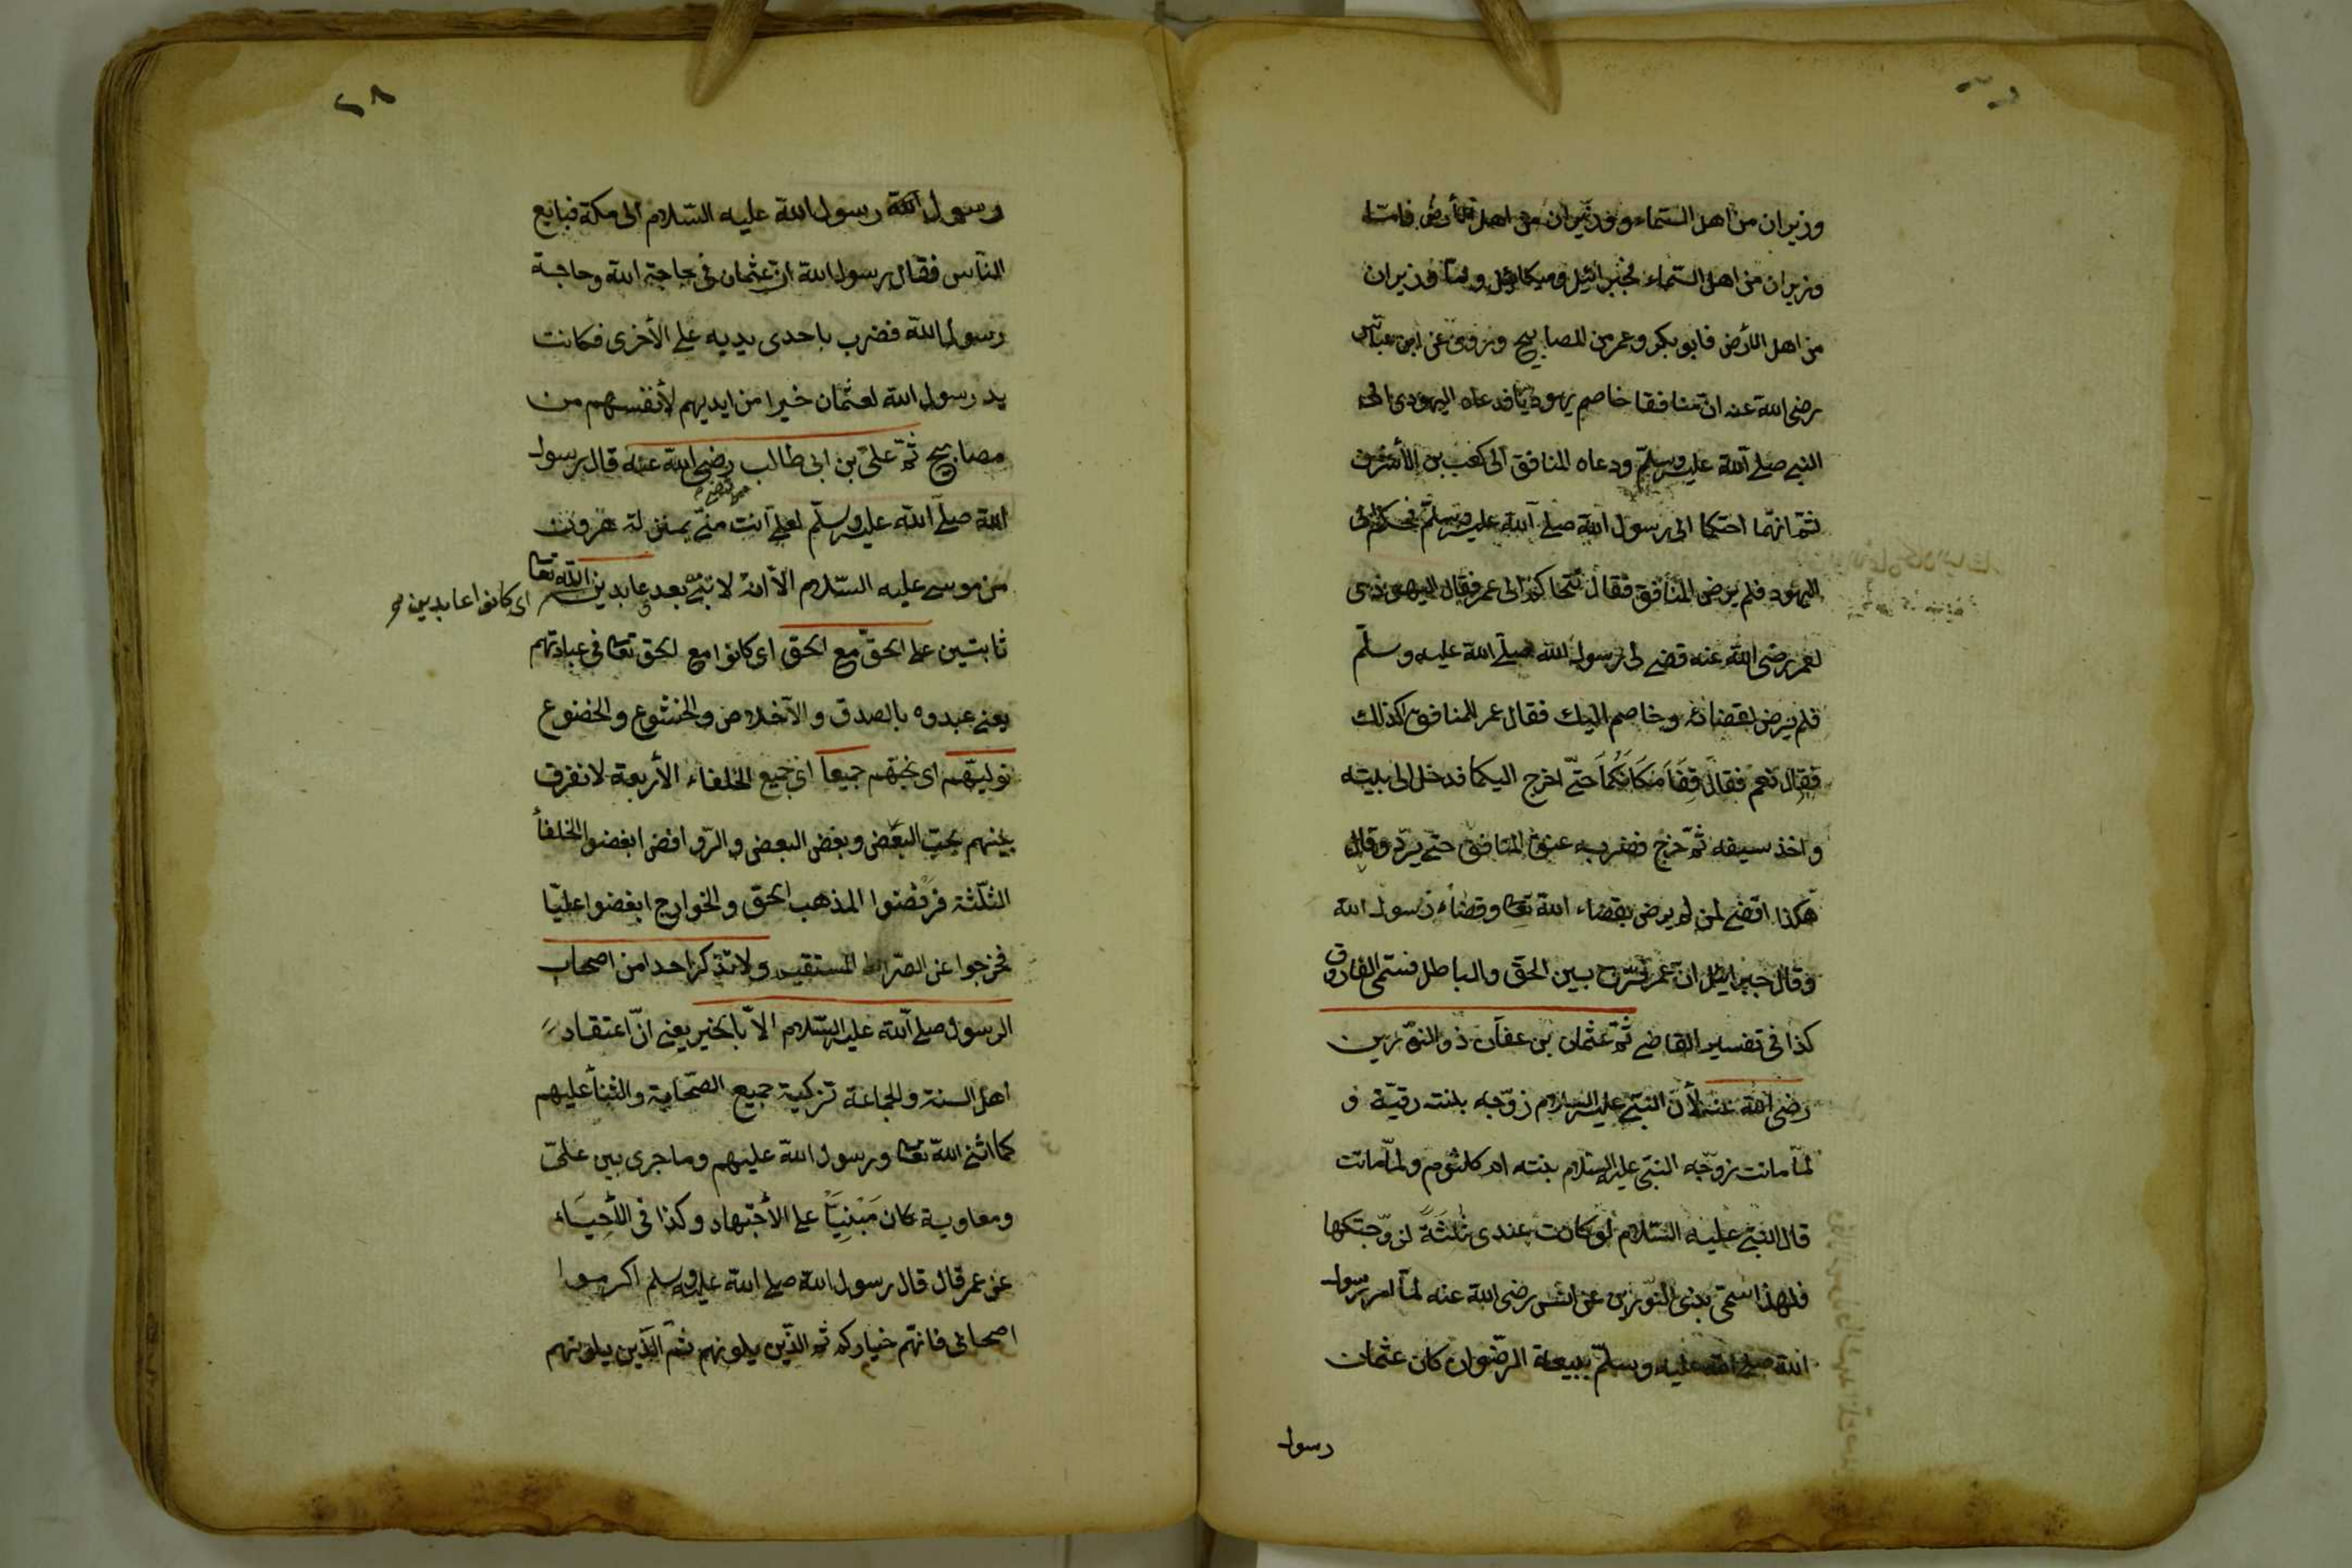 وزيران من اهل السّماء ووزيران من اهل الأرض فامّا
وزيران من اهل السّماء فجبرائيل وميكائيل وامّا وزيران
من اهل الأرض فابو بكر وعمر من المصابيح وروى عن ابن عبّاس
رضى الله عنه انّ منافقا خاصم يهوديّا فدعاه اليهودى الى
النبى صلى الله عليه وسلّم ودعاه المنافق الى كعب بن الأشرف
ثمّ انّهما احتكما الى رسول الله صلى الله عليه وسلّم فحكم
اليهود فلم يرض المنافق فقال نتحاكم الى عمر فقال اليهودى
لعمر رضى الله عنه قضى لى رسول الله صلّى الله عليه وسلّم
فلم يرض لقضائه وخاصم اليك فقال عمر للمنافق اكذلك
فقال نعم فقال قِفَا مَكَانَكُمَا حتّى اخرج اليكما فدخل الى بيته
واخذ سيفه ثمّ خرج فضرب به عنق المنافق حتّى برد وقال
هكذا اقضى لمن لم يرض بقضاء الله تعا وقضاء رسول الله
وقال جبرائيل انّ عمر فرّق بين الحقّ والباطل فسمّى الفاروق
كذا فى تفسير القاضى ثمّ عثمان بن عفّان ذو النّورين
رضى الله عنه لأنّ النبىّ عليه السلام زوّجه بنته رقيّة و
لمّا ماتت زوّجه النبّى عليه السلام بنته ام كلثوم ولمّا ماتت
قال النبىّ عليه السّلام لو كانت عندى ثلثَةً لزوّجتكها
فلهذا سمّى بذى النّورين عن انس رضى الله عنه لمّا امر رسول
الله صلى الله عليه وسلّم ببيعة الرّضوان كان عثمان
رسول
٢٨
رسول الله رسول الله عليه السّلام الى مكّة فبايع
النّاس فقال رسول الله انّ عثمان فى حاجة الله وحاجة
رسول الله فضرب باحدى يديه على الأخرى فكانت
يد رسول الله لعثمان خيرا من ايديهم لأنفسهم من
مصابيح ثمّ علىّ بن ابى طالب رضى الله عنه قال رسول
المرتضى
الله صلى الله عليه وسلّم لعلى انت منّى بمنزلة هرون
من موسى عليه السّلام الّا انّه لا نبىّ بعدى عابدين الله تعا
اى كانوا عابدين
ثابتين على الحقّ مع الحقّ اى كانوا مع الحق تعا فى عبادتهم
يعنى عبدوه بالصدق والاخلاص والخشوع والخضوع
نوليّهم اى نحبّهم جميعاً اى جميع الخلفاء الأربعة لا نفرق
بينهم بحبّ البعض وبغض البعض والرّوافض ابغضوا الخلفأ
الثلثة فرفضوا المذهب الحقّ والخوارج ابغضوا عليّا
فخرجوا عن الصّراط المستقيم ولا نذكر احدا من اصحاب
الرسول صلى الله عليه السّلام الّا بالخير يعنى انّ اعتقاد
اهل السنة والجماعة تزكية جميع الصّحابة والثنأ عليهم
كما اثنى الله تعا ورسول الله عليهم وما جرى بين علىّ
ومعاوية كان مَبْنِيّاً على الأجتهاد وكذا فى الأحِيَاء
عن عمر قال قال رسول الله صلى الله عليه وسلم اكرموا
اصحابى فانّهم خياركم ثم الّذين يلونهم ثمّ الّذين يلونهم